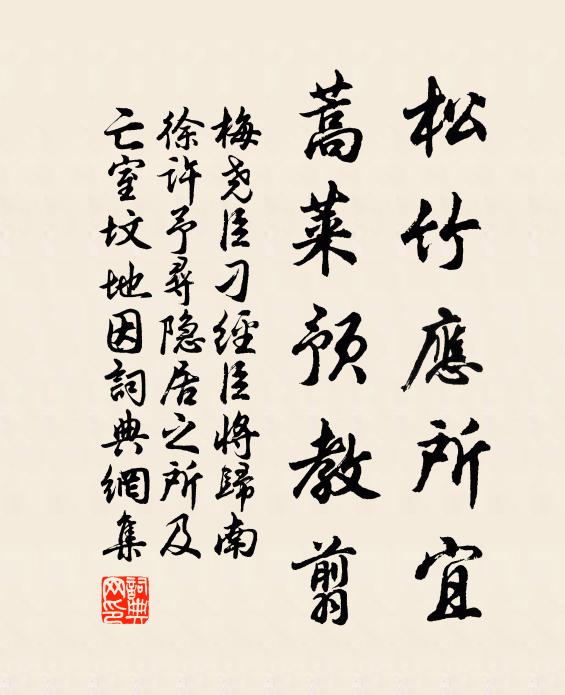 松竹應所宜
蒿萊預教剪
梅尧臣刁經臣將歸南
徐許予尋隐居之所及
亡室坟地因詞典網集
詞典网印